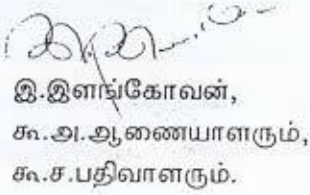 இ.இளங்கோவன்,
கூ.அ.ஆணையாளரும்,
கூ.ச.பதிவாளரும்.